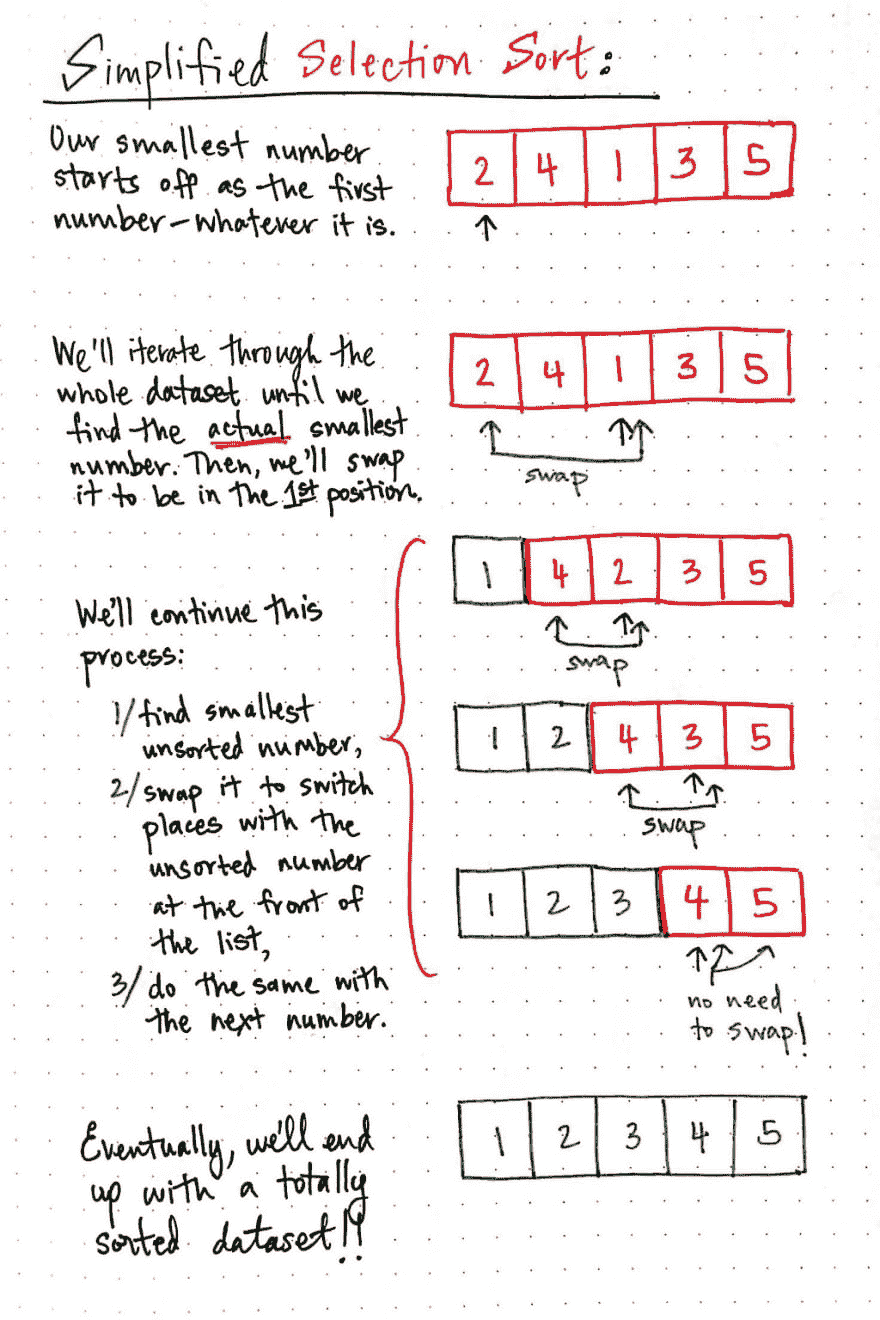 Simplified Selection Sort:
Our smallest number
starts off as the first
number - whatever it is.
2 4 1 3 5
We'll iterate through the
whole dataset until we
find the actual smallest
number. Then, we'll swap
it to be in the 1st position.
2 4 1 3 5
swap
We'll continue this
process:
1/ find smallest
unsorted number,
2/ swap it to switch
places with the
unsorted number
at the front of
the list,
3/ do the same with
the next number.
1 4 2 3 5
swap
1 2 4 3 5
swap
1 2 3 4 5
no need
to swap!
Eventually, we'll end
up with a totally
sorted dataset!!
1 2 3 4 5